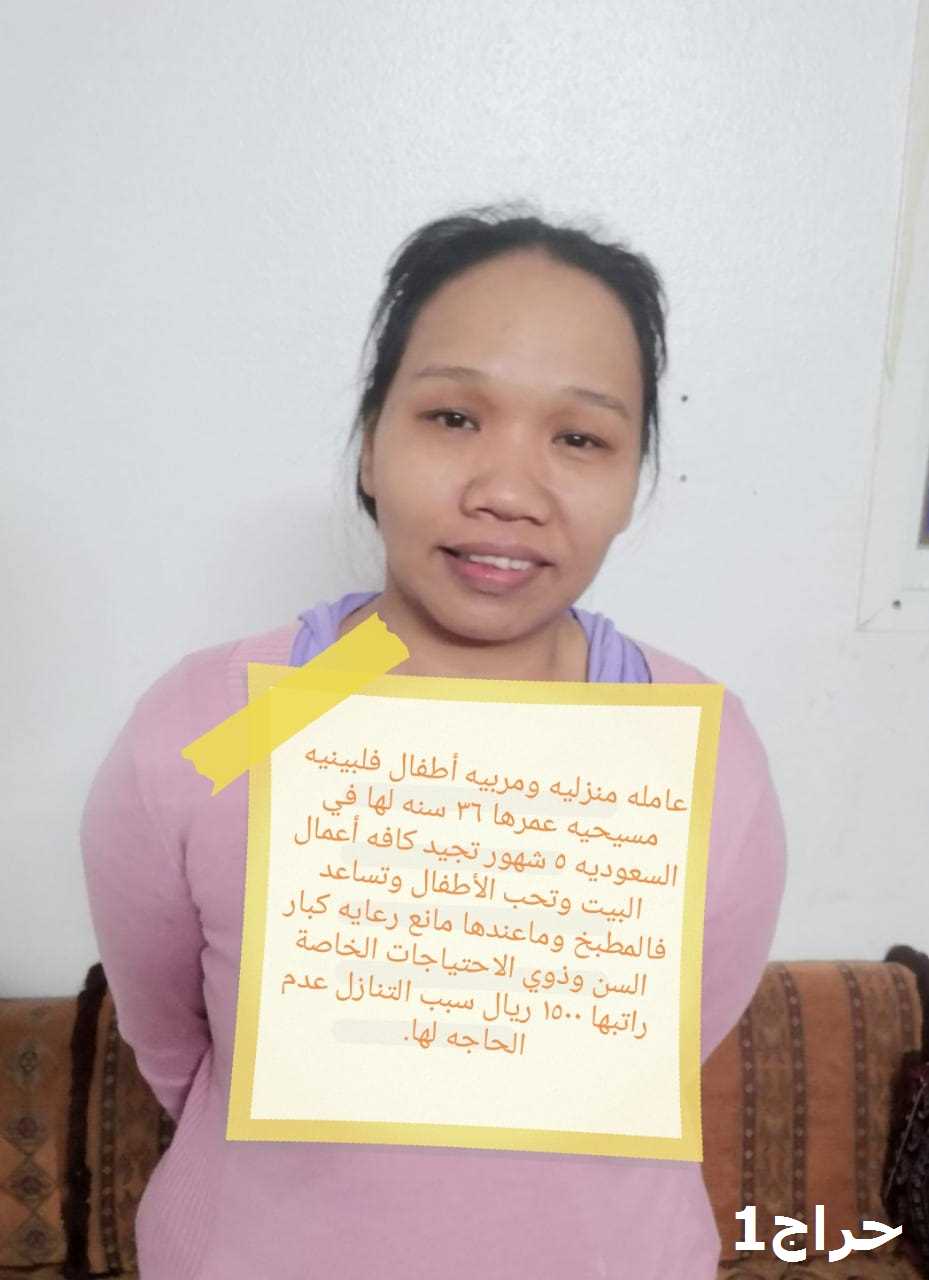 عامله منزليه ومربيه أطفال فلبينيه
مسيحيه عمرها ٣٦ سنه لها في
السعوديه ٥ شهور تجيد كافه أعمال
البيت وتحب الأطفال وتساعد
فالمطبخ وماعندها مانع رعايه كبار
السن وذوي الاحتياجات الخاصة
راتبها ١٥٠٠ ريال سبب التنازل عدم
الحاجه لها.
حراج1